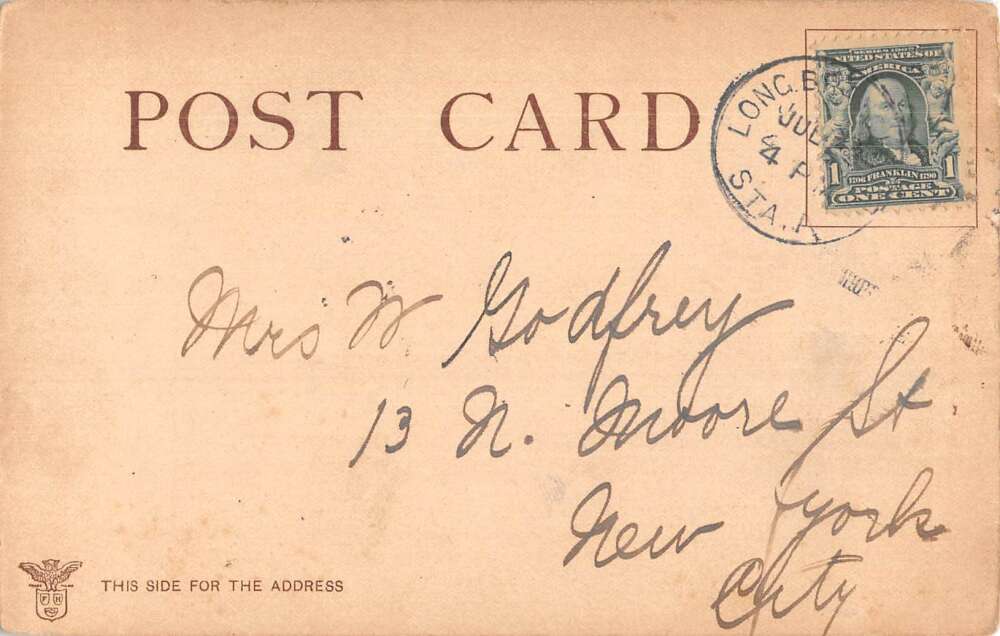 POST CARD
LONG.B
JUL
4 P
STA.
SERIES 1902
UNITED STATES OF
AMERICA
1706 FRANKLIN 1790
1 1
POSTAGE
ONE CENT
Mrs W Godfrey
13 N. Moore St
New York
City
F H
THIS SIDE FOR THE ADDRESS